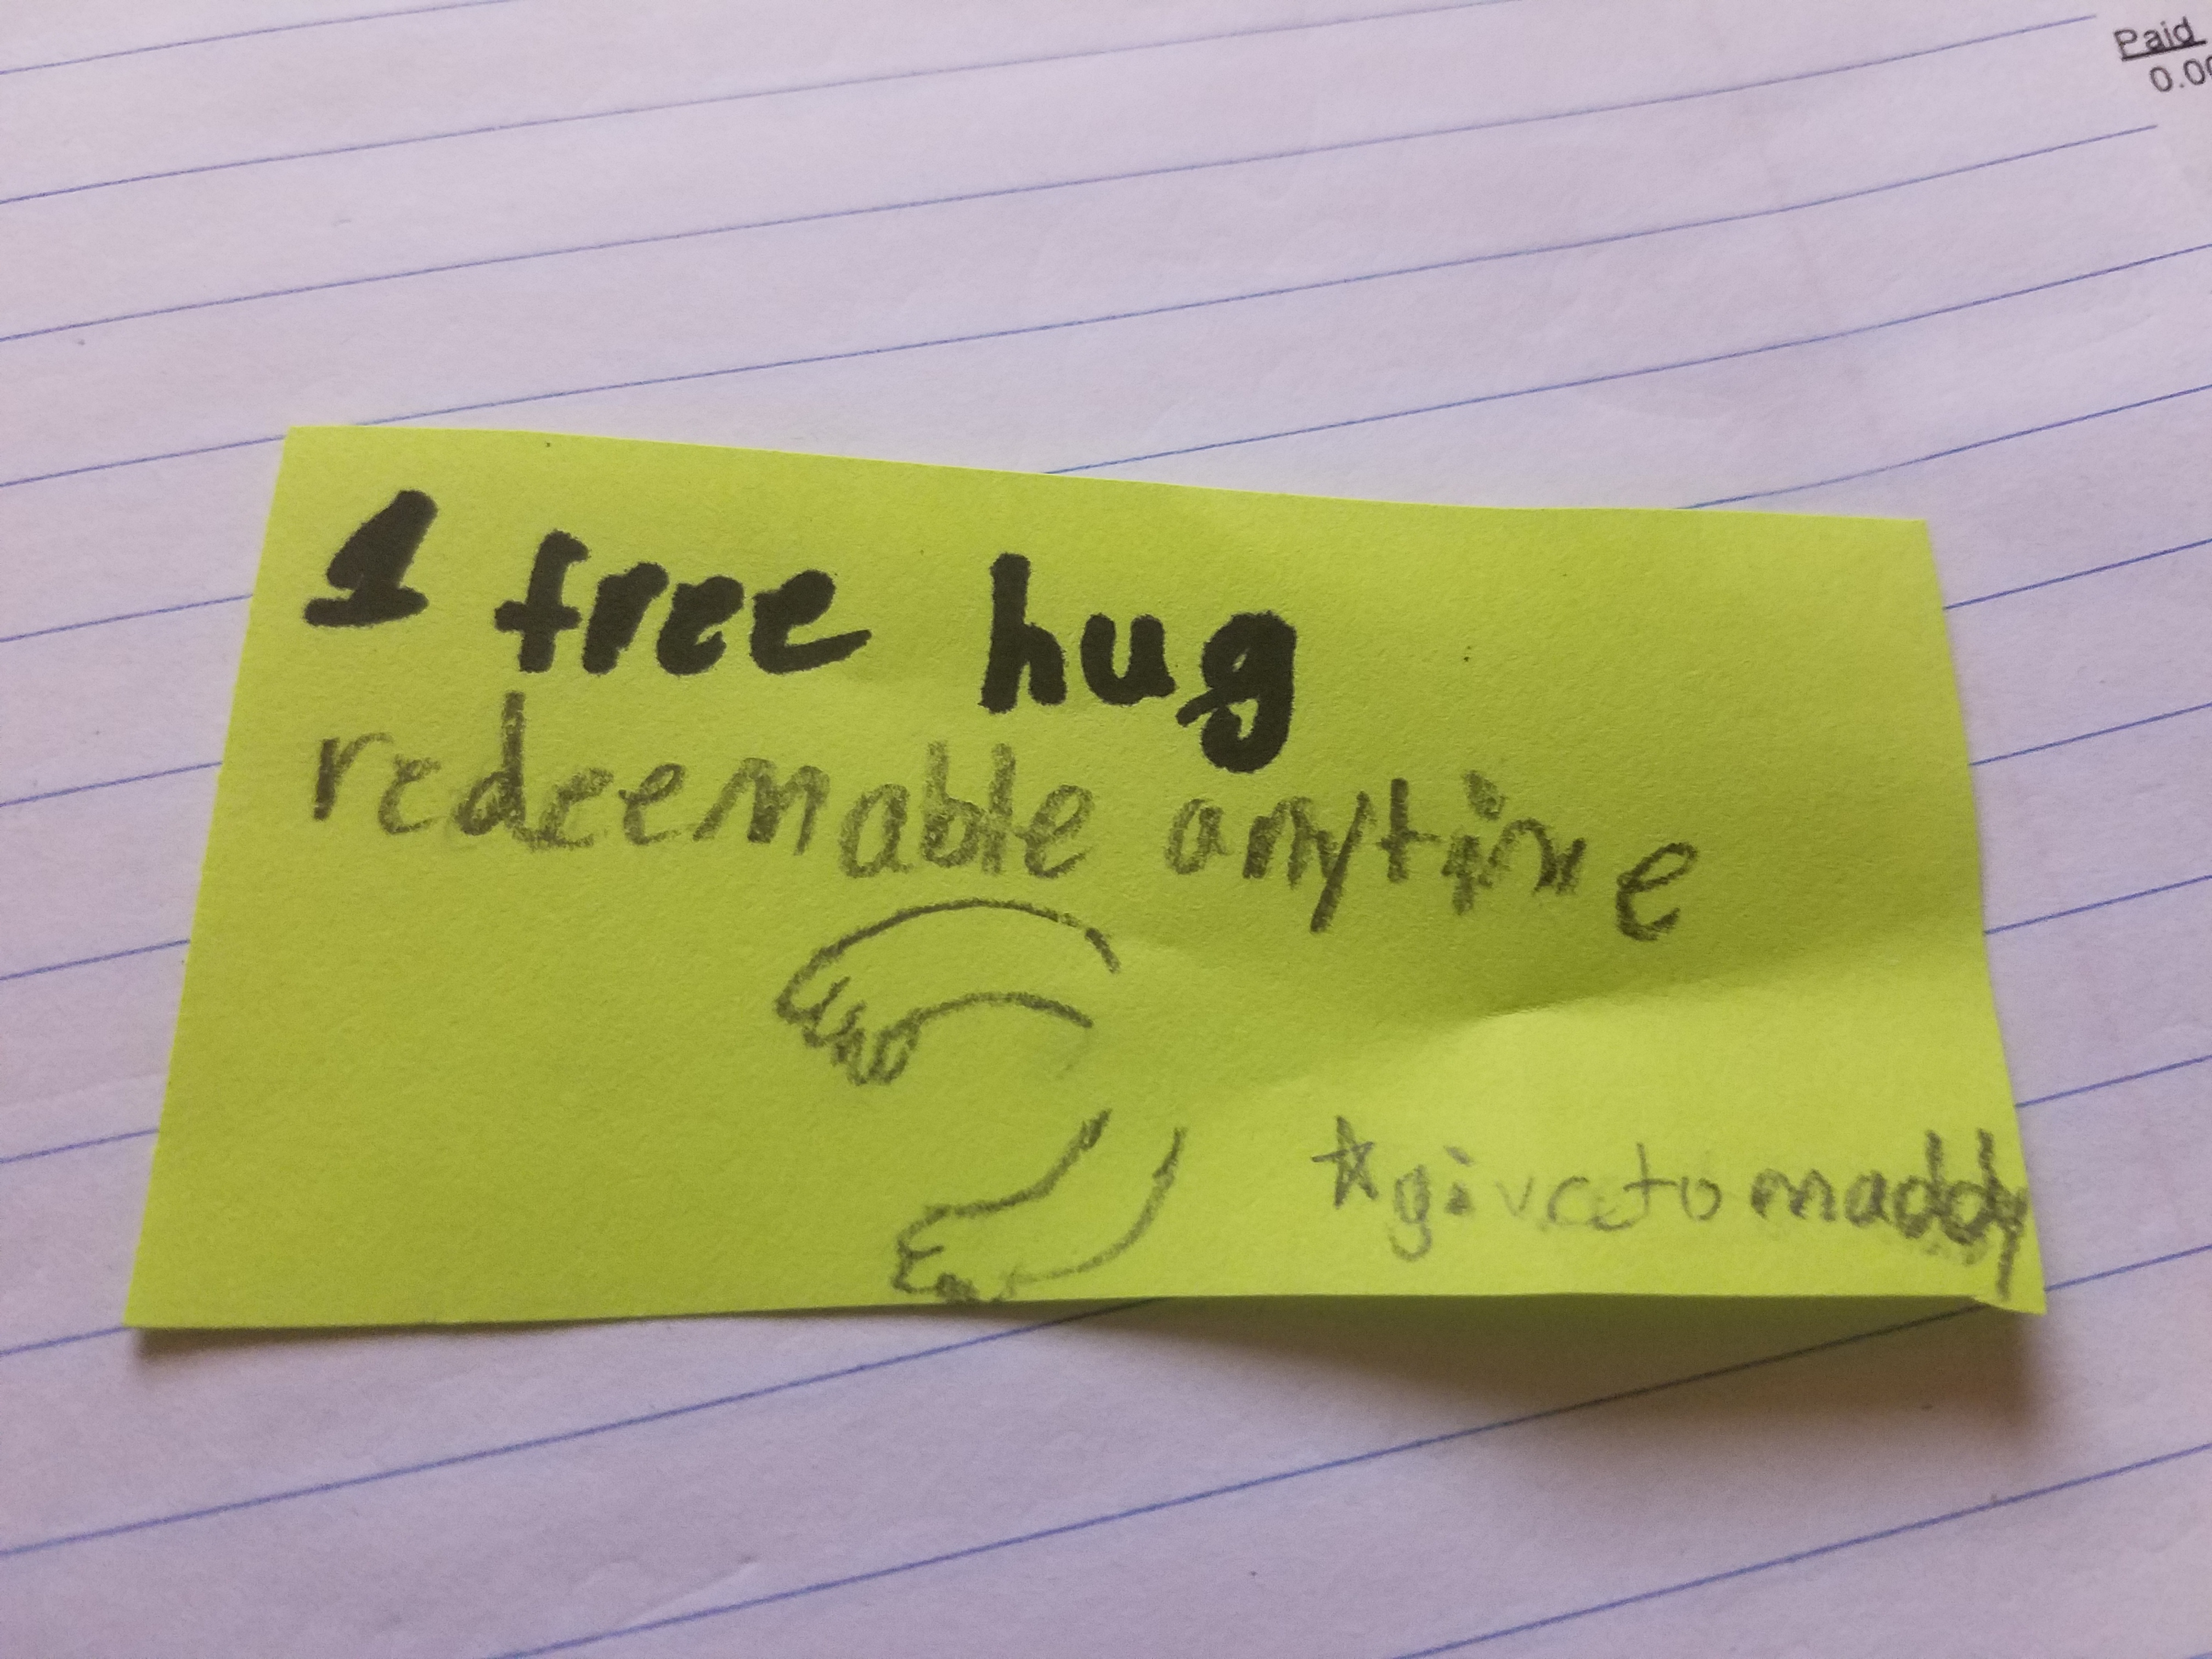 Paid
0.00
1 free hug
redeemable anytime
*give to maddy